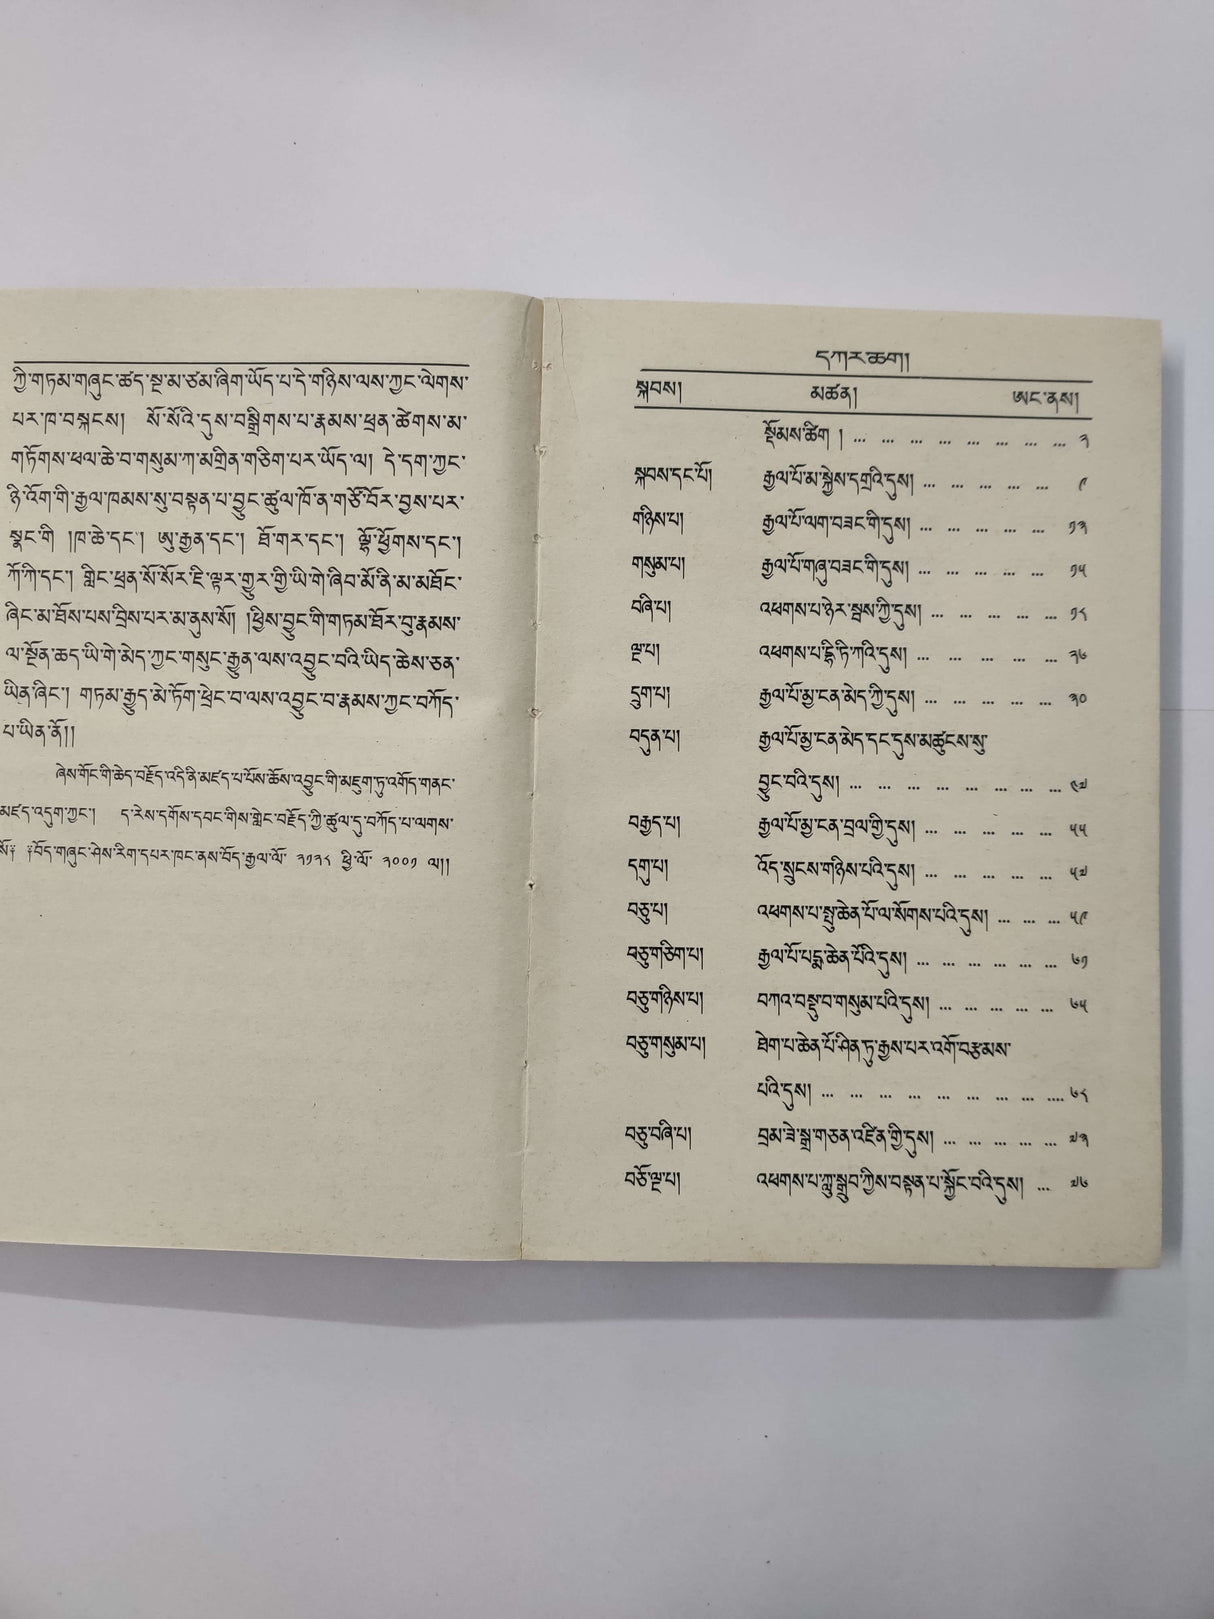 ཀྱི་གཏམ་གཞུང་ཚད་སྔ་མ་ཙམ་ཞིག་ཡོད་པ་དེ་གཉིས་ལས་ཀྱང་ལེགས་
པར་ཁ་བསྐངས། སོ་སོའི་དུས་བསྒྲིགས་པ་རྣམས་ཕྲན་ཚེགས་མ་
གཏོགས་ཕལ་ཆེ་བ་གསུམ་ཀ་མགྲིན་གཅིག་པར་ཡོད་ལ། དེ་དག་ཀྱང་
ཉི་འོག་གི་རྒྱལ་ཁམས་སུ་བསྟན་པ་བྱུང་ཚུལ་ཁོ་ན་གཙོ་བོར་བྱས་པར་
སྣང་གི །ཁ་ཆེ་དང་། ཨུ་རྒྱན་དང་། ཐོ་གར་དང་། ལྷོ་ཕྱོགས་དང་།
ཀོ་ཀི་དང་། གླིང་ཕྲན་སོ་སོར་ཇི་ལྟར་གྱུར་གྱི་ཡི་གེ་ཞིབ་མོ་ནི་མ་མཐོང་
ཞིང་མ་ཐོས་པས་བྲིས་པར་མ་ནུས་སོ། །ཕྱིས་བྱུང་གི་གཏམ་ཐོར་བུ་རྣམས་
ལ་སྔོན་ཆད་ཡི་གེ་མེད་ཀྱང་གསུང་རྒྱུན་ལས་འབྱུང་བའི་ཡིད་ཆེས་ཅན་
ཡིན་ཞིང་། གཏམ་རྒྱུད་མེ་ཏོག་ཕྲེང་བ་ལས་འབྱུང་བ་རྣམས་ཀྱང་བཀོད་
པ་ཡིན་ནོ།།
ཞེས་གོང་གི་ཆེད་བརྗོད་འདི་ནི་མཛད་པ་པོས་ཆོས་འབྱུང་གི་མཇུག་ཏུ་འགོད་གནང་
མཛད་འདུག་ཀྱང་། ད་རེས་དགོས་དབང་གིས་གླེང་བརྗོད་ཀྱི་ཚུལ་དུ་བཀོད་པ་ལགས་
སོ༎ ༎བོད་གཞུང་ཤེས་རིག་དཔར་ཁང་ནས་བོད་རྒྱལ་ལོ་ ༢༡༢༨ ཕྱི་ལོ་ ༢༠༠༡ ལ།།
དཀར་ཆག།
སྐབས། མཚན། ཨང་ནས།
སྡོམས་ཚིག ། ... ... ... ... ... ... ... ... ༢
སྐབས་དང་པོ། རྒྱལ་པོ་མ་སྐྱེས་དགྲའི་དུས། ... ... ... ... ... ༩
གཉིས་པ། རྒྱལ་པོ་ལག་བཟང་གི་དུས། ... ... ... ... ... ༡༣
གསུམ་པ། རྒྱལ་པོ་གཞུ་བཟང་གི་དུས། ... ... ... ... ... ༡༥
བཞི་པ། འཕགས་པ་ཉེར་སྦས་ཀྱི་དུས། ... ... ... ... ... ༡༨
ལྔ་པ། འཕགས་པ་དྷི་ཏི་ཀའི་དུས། ... ... ... ... ... ༢༦
དྲུག་པ། རྒྱལ་པོ་མྱ་ངན་མེད་ཀྱི་དུས། ... ... ... ... ... ༣༠
བདུན་པ། རྒྱལ་པོ་མྱ་ངན་མེད་དང་དུས་མཚུངས་སུ་
བྱུང་བའི་དུས། ... ... ... ... ... ... ... ... ༤༧
བརྒྱད་པ། རྒྱལ་པོ་མྱ་ངན་བྲལ་གྱི་དུས། ... ... ... ... ... ༥༥
དགུ་པ། འོད་སྲུངས་གཉིས་པའི་དུས། ... ... ... ... ... ༥༧
བཅུ་པ། འཕགས་པ་སྤྲུ་ཆེན་པོ་ལ་སོགས་པའི་དུས། ... ... ... ༥༩
བཅུ་གཅིག་པ། རྒྱལ་པོ་པདྨ་ཆེན་པོའི་དུས། ... ... ... ... ... ... ༦༡
བཅུ་གཉིས་པ། བཀའ་བསྡུ་བ་གསུམ་པའི་དུས། ... ... ... ... ... ༦༥
བཅུ་གསུམ་པ། ཐེག་པ་ཆེན་པོ་ཤིན་ཏུ་རྒྱས་པར་འགོ་བརྩམས་
པའི་དུས། ... ... ... ... ... ... ... ... .... ༦༨
བཅུ་བཞི་པ། བྲམ་ཟེ་སྒྲ་གཅན་འཛིན་གྱི་དུས། ... ... ... ... ... ༧༣
བཅོ་ལྔ་པ། འཕགས་པ་ཀླུ་སྒྲུབ་ཀྱིས་བསྟན་པ་སྐྱོང་བའི་དུས། ... ༧༦